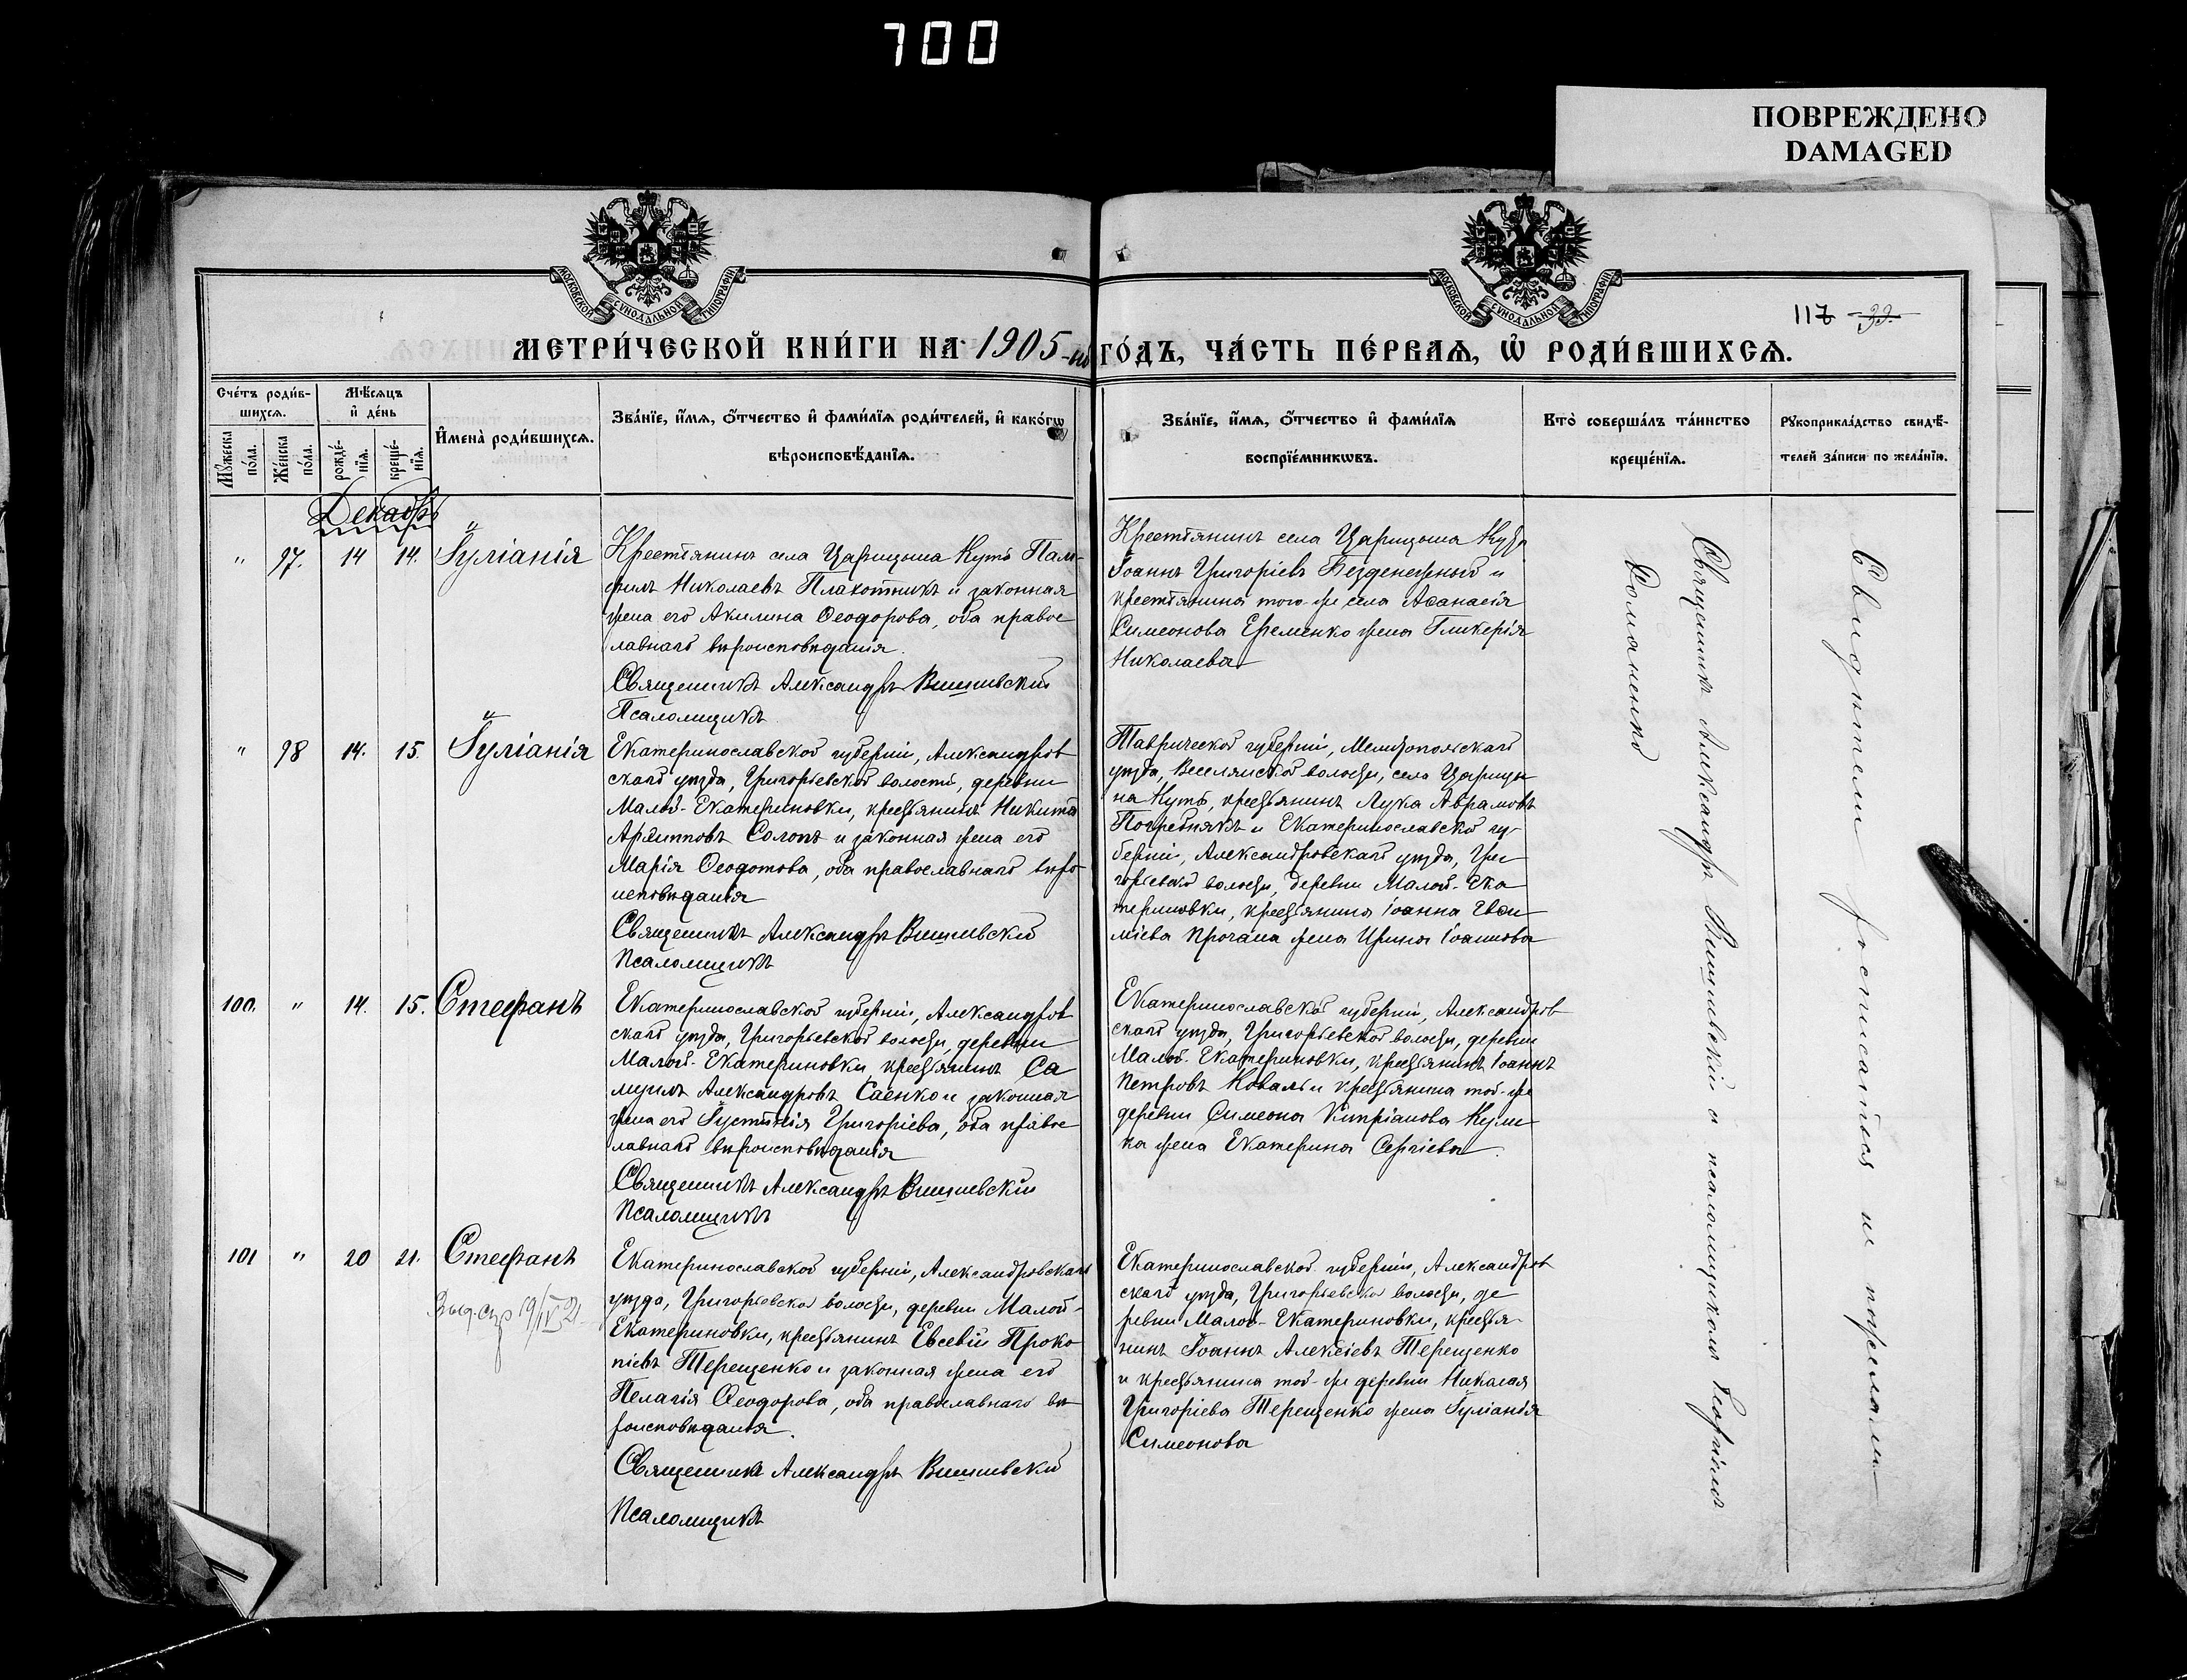 700
ПОВРЕЖДЕНО
DAMAGED
МОСКОВСКОЙ СѴНОДАЛЬНОЙ ТИПОГРАФІИ
МОСКОВСКОЙ СѴНОДАЛЬНОЙ ТИПОГРАФІИ
117
МЕТРИ́ЧЕСКОЙ КНИ́ГИ НА 1905-ый ГО́ДЪ, ЧА́СТЬ ПЕ́РВАѦ, Ѡ҆ РОДИ́ВШИХСѦ.
Сче́тъ роди́в-
шихсѧ.
Мѣ́сѧцъ
и҆ де́нь
Мꙋ́жеска по́ла.
Же́нска по́ла.
рожде́-
нїѧ.
креще́-
нїѧ.
И҆мена̀ роди́вшихсѧ.
Зва́нїе, и҆́мѧ, ѻ҆́тчество и҆ фами́лїѧ роди́телей, и҆ како́гѡ
вѣроисповѣ́данїѧ.
Зва́нїе, и҆́мѧ, ѻ҆́тчество и҆ фами́лїѧ
воспрїе́мникѡвъ.
Кто̀ соверша́лъ та́инство
креще́нїѧ.
Рꙋкоприкла́дство свидѣ́-
телей за́писи по жела́нїю.
Декабрь
" 97. 14 14. Іуліанія
Крестьянинъ села Царицына Кутъ Пам-
филъ Николаевъ Плахотникъ и законная
жена его Акилина Ѳеодорова, оба правос
лавнаго вѣроисповѣданія.
Священникъ Александръ Вишневскій
Псаломщикъ
Крестьянинъ села Царицына Кута
Іоаннъ Григоріевъ Безденежный и
крестьянина того-же села Аѳанасія
Симеонова Еременко жена Гликерія
Николаева
" 98 14. 15. Іуліанія
Екатеринославской губерніи, Александров
скаго уѣзда, Григорьевской волости, деревни
Малой-Екатериновки, крестьянинъ Никита
Архипповъ Солопъ и законная жена его
Марія Ѳеодотова, оба православнаго вѣро
исповѣданія
Священникъ Александръ Вишневскій
Псаломщикъ
Таврической губерніи, Мелитопольскаго
уѣзда, Веселянской волости, села Царицы
на Кутъ, крестьянинъ Лука Аврамовъ
Погребнякъ и Екатеринославской гу-
берніи, Александровскаго уѣзда, Гри
горьевской волости, деревни Малой-Ека
териновки, крестьянина Іоанна
Прогана жена Ирина Іоаннова
100. " 14. 15. Стефанъ
Екатеринославской губерніи, Александров
скаго уѣзда, Григорьевской волости, деревни
Малой-Екатериновки, крестьянинъ Са
муилъ Александровъ Саенко и законная
жена его Іустинія Григоріева, оба правос
лавнаго вѣроисповѣданія
Священникъ Александръ Вишневскій
Псаломщикъ
Екатеринославской губерніи, Александров
скаго уѣзда, Григорьевской волости, деревни
Малой-Екатериновки, крестьянинъ Іоаннъ
Петровъ Коваль и крестьянина той-же
деревни Симеона Кипріанова Кули
ка жена Екатерина Сергіева.
101 " 20 21. Стефанъ
19/IV 21
Екатеринославской губерніи, Александровскаго
уѣзда, Григорьевской волости, деревни Малой-
Екатериновки, крестьянинъ Евсевій Проко
піевъ Терещенко и законная жена его
Пелагія Ѳеодорова, оба православнаго вѣ
роисповѣданія.
Священникъ Александръ Вишневскій
Псаломщикъ
Екатеринославской губерніи, Александров
скаго уѣзда, Григорьевской волости, де
ревни Малой-Екатериновки, крестья-
нинъ Іоаннъ Алексіевъ Терещенко
и крестьянина той-же деревни Николая
Григоріева Терещенко жена Іуліанія
Симеонова
Священникъ Александръ Вишневскій и псаломщикомъ Георгіемъ
Романенко
Свидѣтели росписаться не пожелали